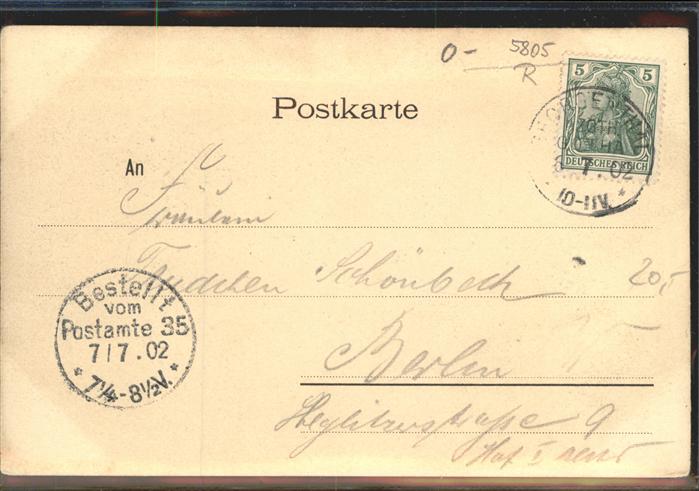 0 - 5805
R
5 5
DEUTSCHES REICH
7.02
10-11V.
Postkarte
An
Fräulein
Trudchen Schönbeck
20,-
Bestellt
vom
Postamte 35
7/7.02
7¼-8½V.
Berlin
Steglitzerstraße 9
Hof I